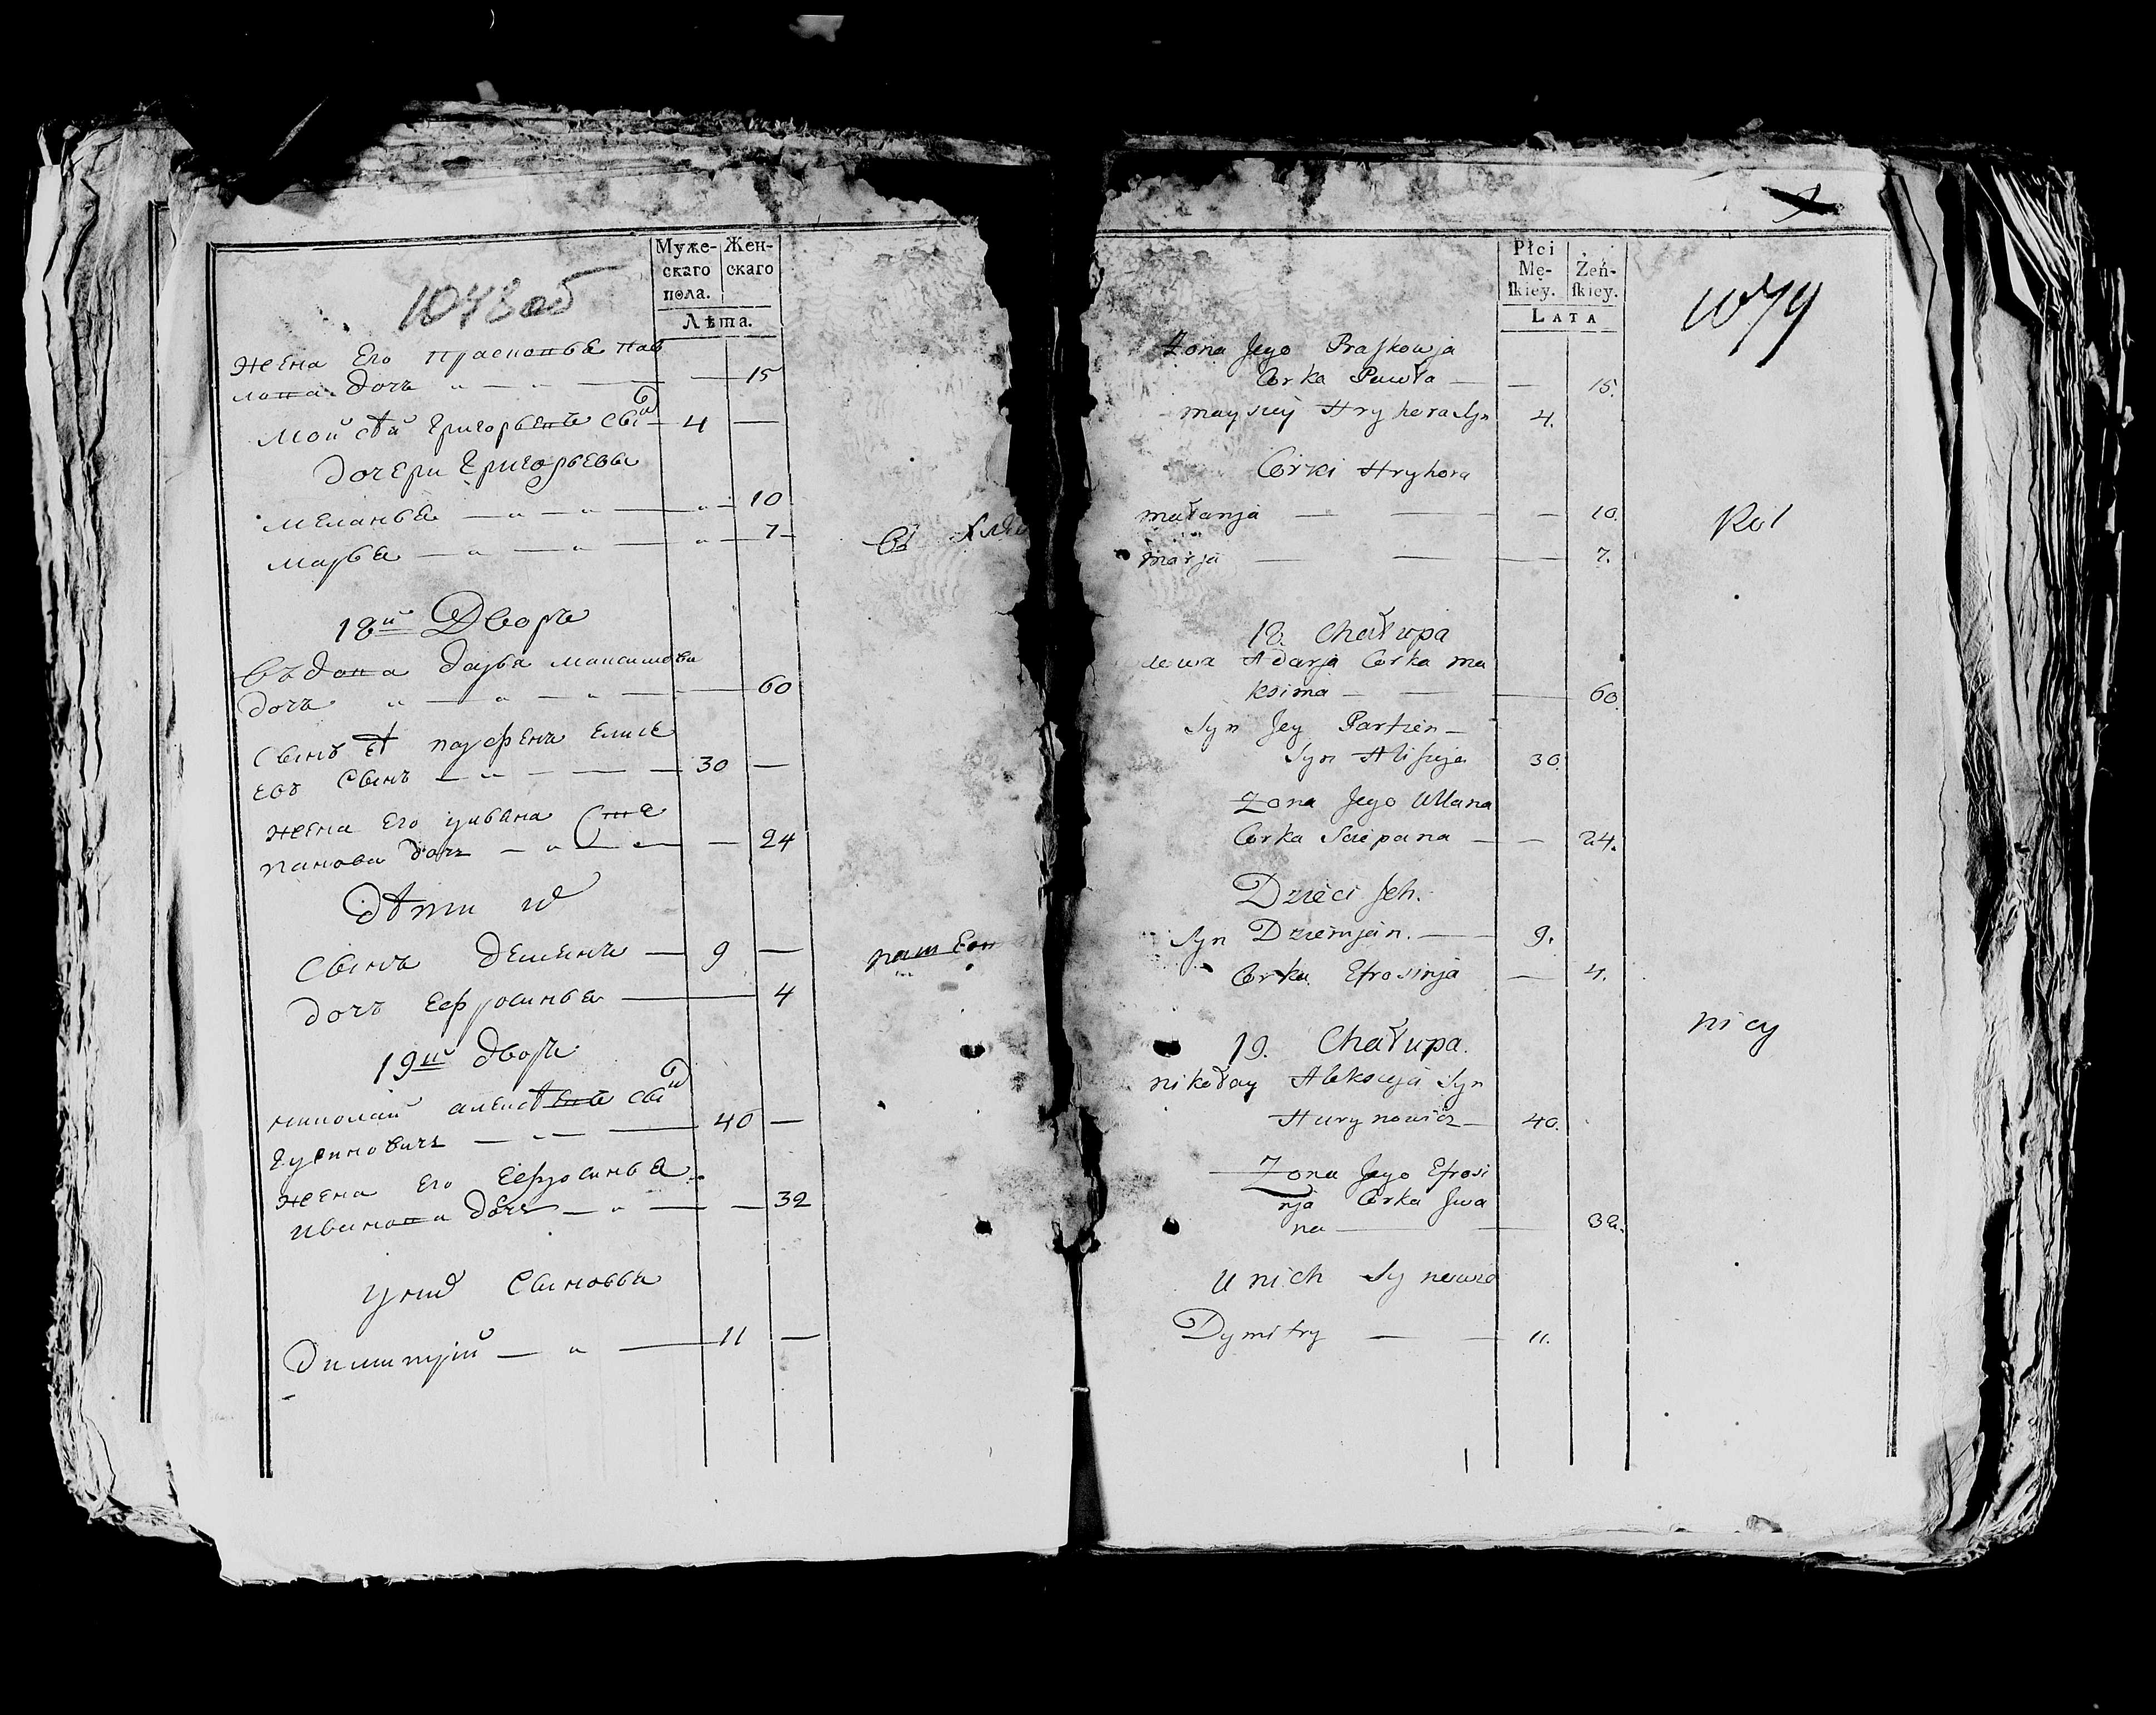 Муже-
скаго
пола.
Жен-
скаго
Лѣта.
1078 об
жена Его Прасковья Пав
лова дочь 15
Мойсѣй Григорьевъ сынъ 4
дочери Григорьевы
Меланья 10
Марья 7
18й Дворъ
въдова Дарья Максимова
дочь 60
Сынъ Ея Парфенъ Елисе
евъ Сынъ 30
жена Его Ульяна Сте
панова дочь 24
Дѣти их
Сынъ Деменъ 9
дочь Ефросинья 4
19й дворъ
николай алексѣевъ сынъ
Гуриновичъ 40
жена Его Ефросинья
иванова дочь 32
у них Сыновья
Димитрий 11
въ
Płci
Mę-
skiey.
Żeń-
skiey.
LATA
1079
Żona Jego Praskowja
Corka Pawła 15.
Maysiey Hryhora Syn 4.
Corki Hryhora
Małanja 10.
Marja 7.
Rol
18. Chałupa
dowa Hdarja Corka Ma
ksima 60.
Syn Jey Partien
Syn Alisieja 30.
Żona Jego Ullana
Corka Sciepana 24.
Dzieci Jch.
Syn Dziemjan. 9.
Corka Efrosinja 4.
nicy
19. Chałupa.
Nikołay Alekseja Syn
Hurynowicz 40.
Żona Jego Efrosi
nja Corka Jwa
na 32.
U nich Synowie
Dymitry 11.